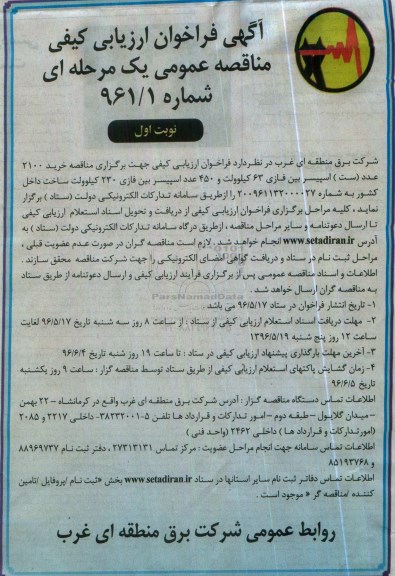 آگهی فراخوان ارزیابی کیفی
مناقصه عمومی یک مرحله ای
شماره ۹۶۱/۱
نوبت اول
شرکت برق منطقه ای غرب در نظر دارد فراخوان ارزیابی کیفی جهت برگزاری مناقصه خرید ۲۱۰۰
عدد (ست) اسپیسر بین فازی ۶۳ کیلوولت و ۴۵۰ عدد اسپیسر بین فازی ۲۳۰ کیلوولت ساخت داخل
کشور به شماره ۲۰۰۹۶۱۱۳۲۰۰۰۰۲۷ را از طریق سامانه تدارکات الکترونیکی دولت (ستاد) برگزار
نماید ، کلیه مراحل برگزاری فراخوان ارزیابی کیفی از دریافت و تحویل اسناد استعلام ارزیابی کیفی
تا ارسال دعوتنامه و سایر مراحل مناقصه ، از طریق درگاه سامانه تدارکات الکترونیکی دولت (ستاد) به
آدرس www.setadiran.ir انجام خواهد شد . لازم است مناقصه گران در صورت عدم عضویت قبلی ،
مراحل ثبت نام در ستاد و دریافت گواهی امضای الکترونیکی را جهت شرکت مناقصه محقق سازند .
اطلاعات و اسناد مناقصه عمومی پس از برگزاری فرآیند ارزیابی کیفی و ارسال دعوتنامه از طریق ستاد
به مناقصه گران ارسال خواهد شد .
ParsNamadData
۱- تاریخ انتشار فراخوان در ستاد ۹۶/۵/۱۷ می باشد
۲- مهلت دریافت اسناد استعلام ارزیابی کیفی از ستاد : از ساعت ۸ روز سه شنبه تاریخ ۹۶/۵/۱۷ لغایت
ساعت ۱۲ روز پنج شنبه ۱۳۹۶/۵/۱۹
۳- آخرین مهلت بارگذاری پیشنهاد ارزیابی کیفی در ستاد : تا ساعت ۱۹ روز شنبه تاریخ ۹۶/۶/۴
۴- زمان گشایش پاکتهای استعلام ارزیابی کیفی از طریق ستاد توسط مناقصه گزار : ساعت ۹ روز یکشنبه
تاریخ ۹۶/۶/۵
اطلاعات تماس دستگاه مناقصه گزار : آدرس شرکت برق منطقه ای غرب واقع در کرمانشاه – ۲۲ بهمن
– میدان گلایول – طبقه دوم – امور تدارکات و قرارداد ها تلفن ۵-۳۸۲۳۲۰۰۱- داخلی ۲۲۱۷ و ۲۰۸۵
(امور تدارکات و قرارداد ها ) داخلی ۲۴۶۲ (واحد فنی )
اطلاعات تماس سامانه جهت انجام مراحل عضویت : مرکز تماس ۲۷۳۱۳۱۳۱ ، دفتر ثبت نام ۸۸۹۶۹۷۳۷
و ۸۵۱۹۳۷۶۸
اطلاعات تماس دفاتر ثبت نام سایر استانها در ستاد www.setadiran.ir بخش «ثبت نام /پروفایل /تامین
کننده /مناقصه گر » موجود است .
روابط عمومی شرکت برق منطقه ای غرب